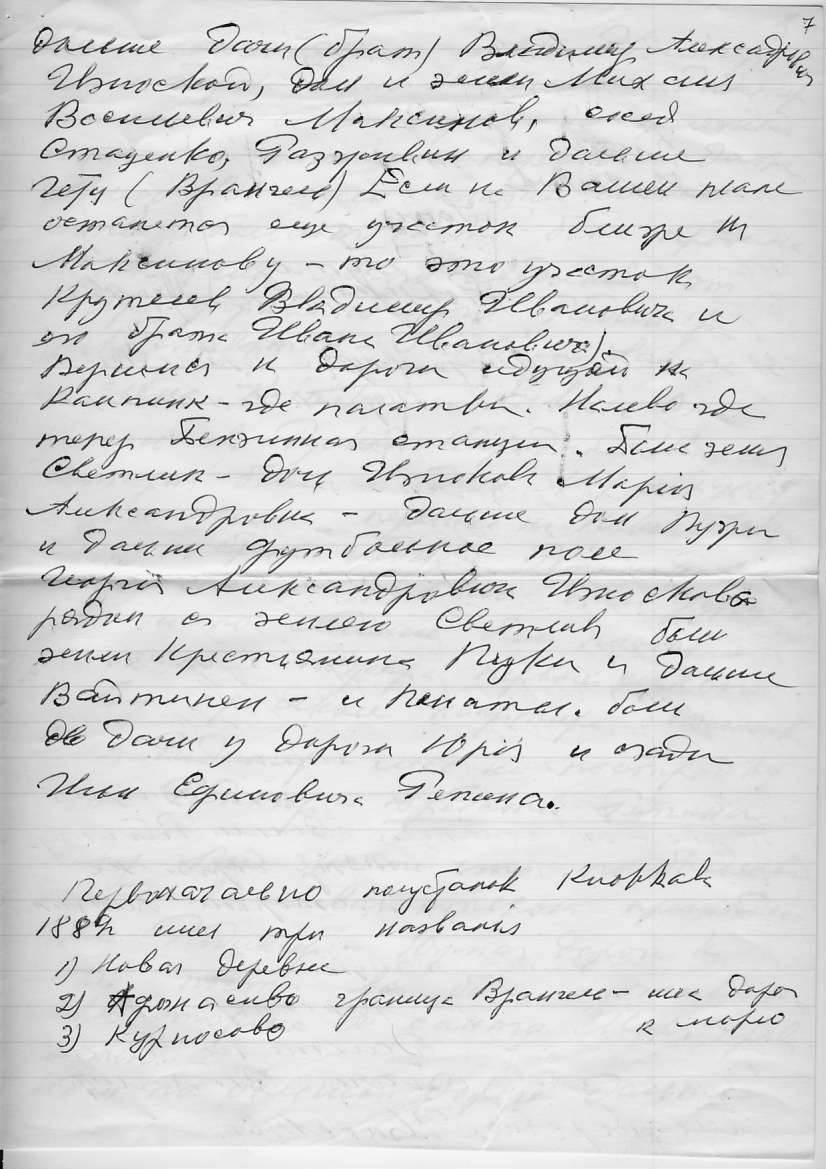 7
дальше Дачи (брат) Владимир Александрович
Износков, дом и земли Михаил
Васильевич Максимов,
Стаценко, Разживин и дальше
Гету (Врангель) Если на Вашем плане
останется еще участок ближе к
Максимову - то это участок
Крутелев Владимир Ивановича и
его брата Ивана Ивановича).
Вернемся к дороги идущей на
Кампинк - где палатки. Налево где
тепер Бензинная станция. Была земля
Светлик - дочь Износков Марія
Александровна - дальше дом Пузри
и дальше футбольное поле
Георгія Александровича Износкова
рядом с землею Светлик были
земли Крестіянина Пузки и дальше
Вайтинен - и Пенаты. были
Дачи у дороги Юрія и сзади
Ильи Ефимовича Репина.
Первоначально полустанок Куоккала
1889 имел три названія
1) Новая деревня
2) Афонасово граница Врангель - шла дорога
к морю
3) Курносово